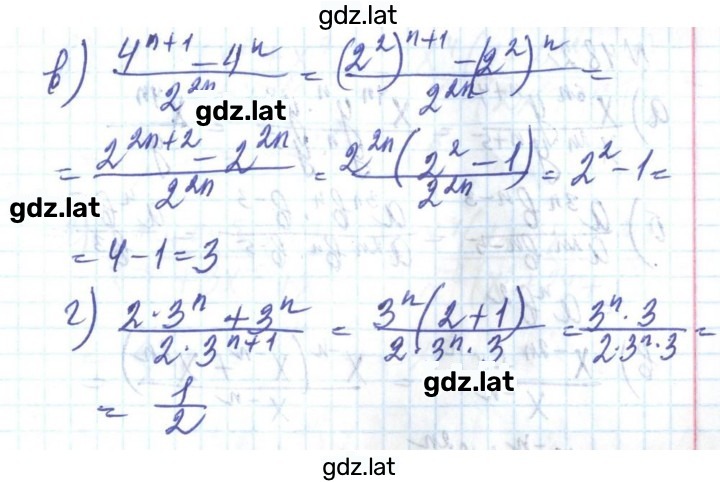 gdz.lat
в) (4^(n+1) - 4^n)/(2^(2n)) = ((2^2)^(n+1) - (2^2)^n)/(2^(2n)) =
gdz.lat
= (2^(2n+2) - 2^(2n))/(2^(2n)) = (2^(2n)(2^2 - 1))/(2^(2n)) = 2^2 - 1 =
gdz.lat
= 4 - 1 = 3
г) (2·3^n + 3^n)/(2·3^(n+1)) = (3^n(2+1))/(2·3^n·3) = (3^n·3)/(2·3^n·3) =
gdz.lat
= 1/2
gdz.lat